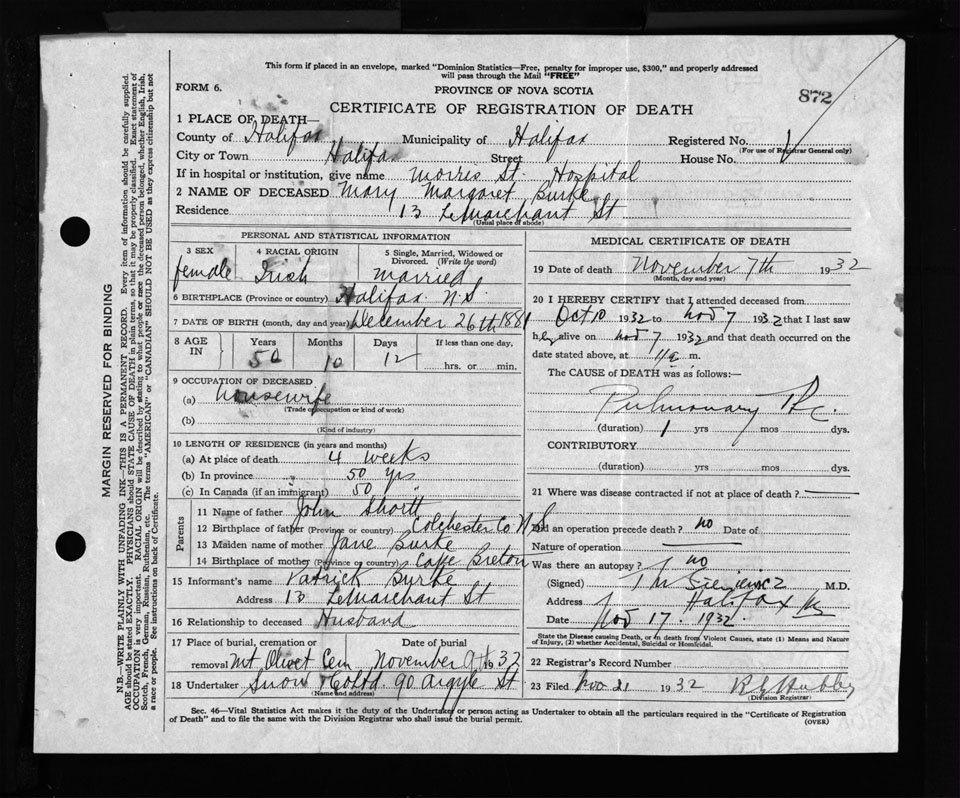 This form if placed in an envelope, marked "Dominion Statistics—Free, penalty for improper use, $300," and properly addressed
will pass through the Mail "FREE"
FORM 6.
PROVINCE OF NOVA SCOTIA
872
CERTIFICATE OF REGISTRATION OF DEATH
1 PLACE OF DEATH—
County of Halifax Municipality of Halifax Registered No.
(For use of Registrar General only)
City or Town Halifax Street House No.
If in hospital or institution, give name Morris St. Hospital
2 NAME OF DECEASED Mary Margaret Burke
Residence 13 LeMarchant St
(Usual place of abode)
PERSONAL AND STATISTICAL INFORMATION
3 SEX 4 RACIAL ORIGIN 5 Single, Married, Widowed or
Divorced. (Write the word)
female Irish married
6 BIRTHPLACE (Province or country) Halifax N.S.
7 DATE OF BIRTH (month, day and year) December 26th 1881
8 AGE IN Years Months Days If less than one day,
50 10 12 hrs. or min.
9 OCCUPATION OF DECEASED
(a) housewife
(Trade occupation or kind of work)
(b)
(Kind of industry)
10 LENGTH OF RESIDENCE (in years and months)
(a) At place of death 4 weeks
(b) In province 50 yrs
(c) In Canada (if an immigrant) 50 "
Parents
11 Name of father John Shortt
12 Birthplace of father (Province or country) Colchester Co N.S.
13 Maiden name of mother Jane Burke
14 Birthplace of mother (Province or country) Cape Breton
15 Informant's name Patrick Burke
Address 13 LeMarchant St
16 Relationship to deceased Husband
17 Place of burial, cremation or Date of burial
removal Mt Olivet Cem November 9th 32
18 Undertaker Snow & Co Ltd. 90 Argyle St
(Name and address)
MEDICAL CERTIFICATE OF DEATH
19 Date of death November 7th 1932
(Month, day and year)
20 I HEREBY CERTIFY that I attended deceased from
Oct 10 1932 to Nov 7 1932 that I last saw
her alive on Nov 7 1932 and that death occurred on the
date stated above, at m.
The CAUSE OF DEATH was as follows:—
Pulmonary
(duration) 1 yrs mos dys.
CONTRIBUTORY
(duration) yrs mos dys.
21 Where was disease contracted if not at place of death?
Did an operation precede death? no Date of
Nature of operation
Was there an autopsy? no
(Signed) M.D.
Address Halifax
Date Nov 17 1932.
State the Disease causing Death, or in death from Violent Causes, state (1) Means and Nature
of Injury, (2) whether Accidental, Suicidal or Homicidal.
22 Registrar's Record Number
23 Filed Nov 21 1932
(Division Registrar)
Sec. 46—Vital Statistics Act makes it the duty of the Undertaker or person acting as Undertaker to obtain all the particulars required in the "Certificate of Registration
of Death" and to file the same with the Division Registrar who shall issue the burial permit.
(OVER)
MARGIN RESERVED FOR BINDING
N.B.—WRITE PLAINLY WITH UNFADING INK—THIS IS A PERMANENT RECORD. Every item of information should be carefully supplied.
AGE should be stated EXACTLY. PHYSICIANS should STATE CAUSE OF DEATH in plain terms, so that it may be properly classified. Exact statement of
OCCUPATION is very important. RACIAL ORIGIN will be described by stating to what people or race the deceased person belonged, whether English, Irish,
Scotch, French, German, Russian, Ruthenian, etc. The terms "AMERICAN" or "CANADIAN" SHOULD NOT BE USED as they express citizenship but not
a race or people. See instructions on back of Certificate.